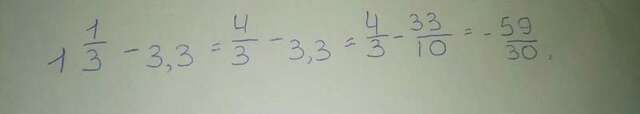 1 1/3 - 3,3 = 4/3 - 3,3 = 4/3 - 33/10 = - 59/30.